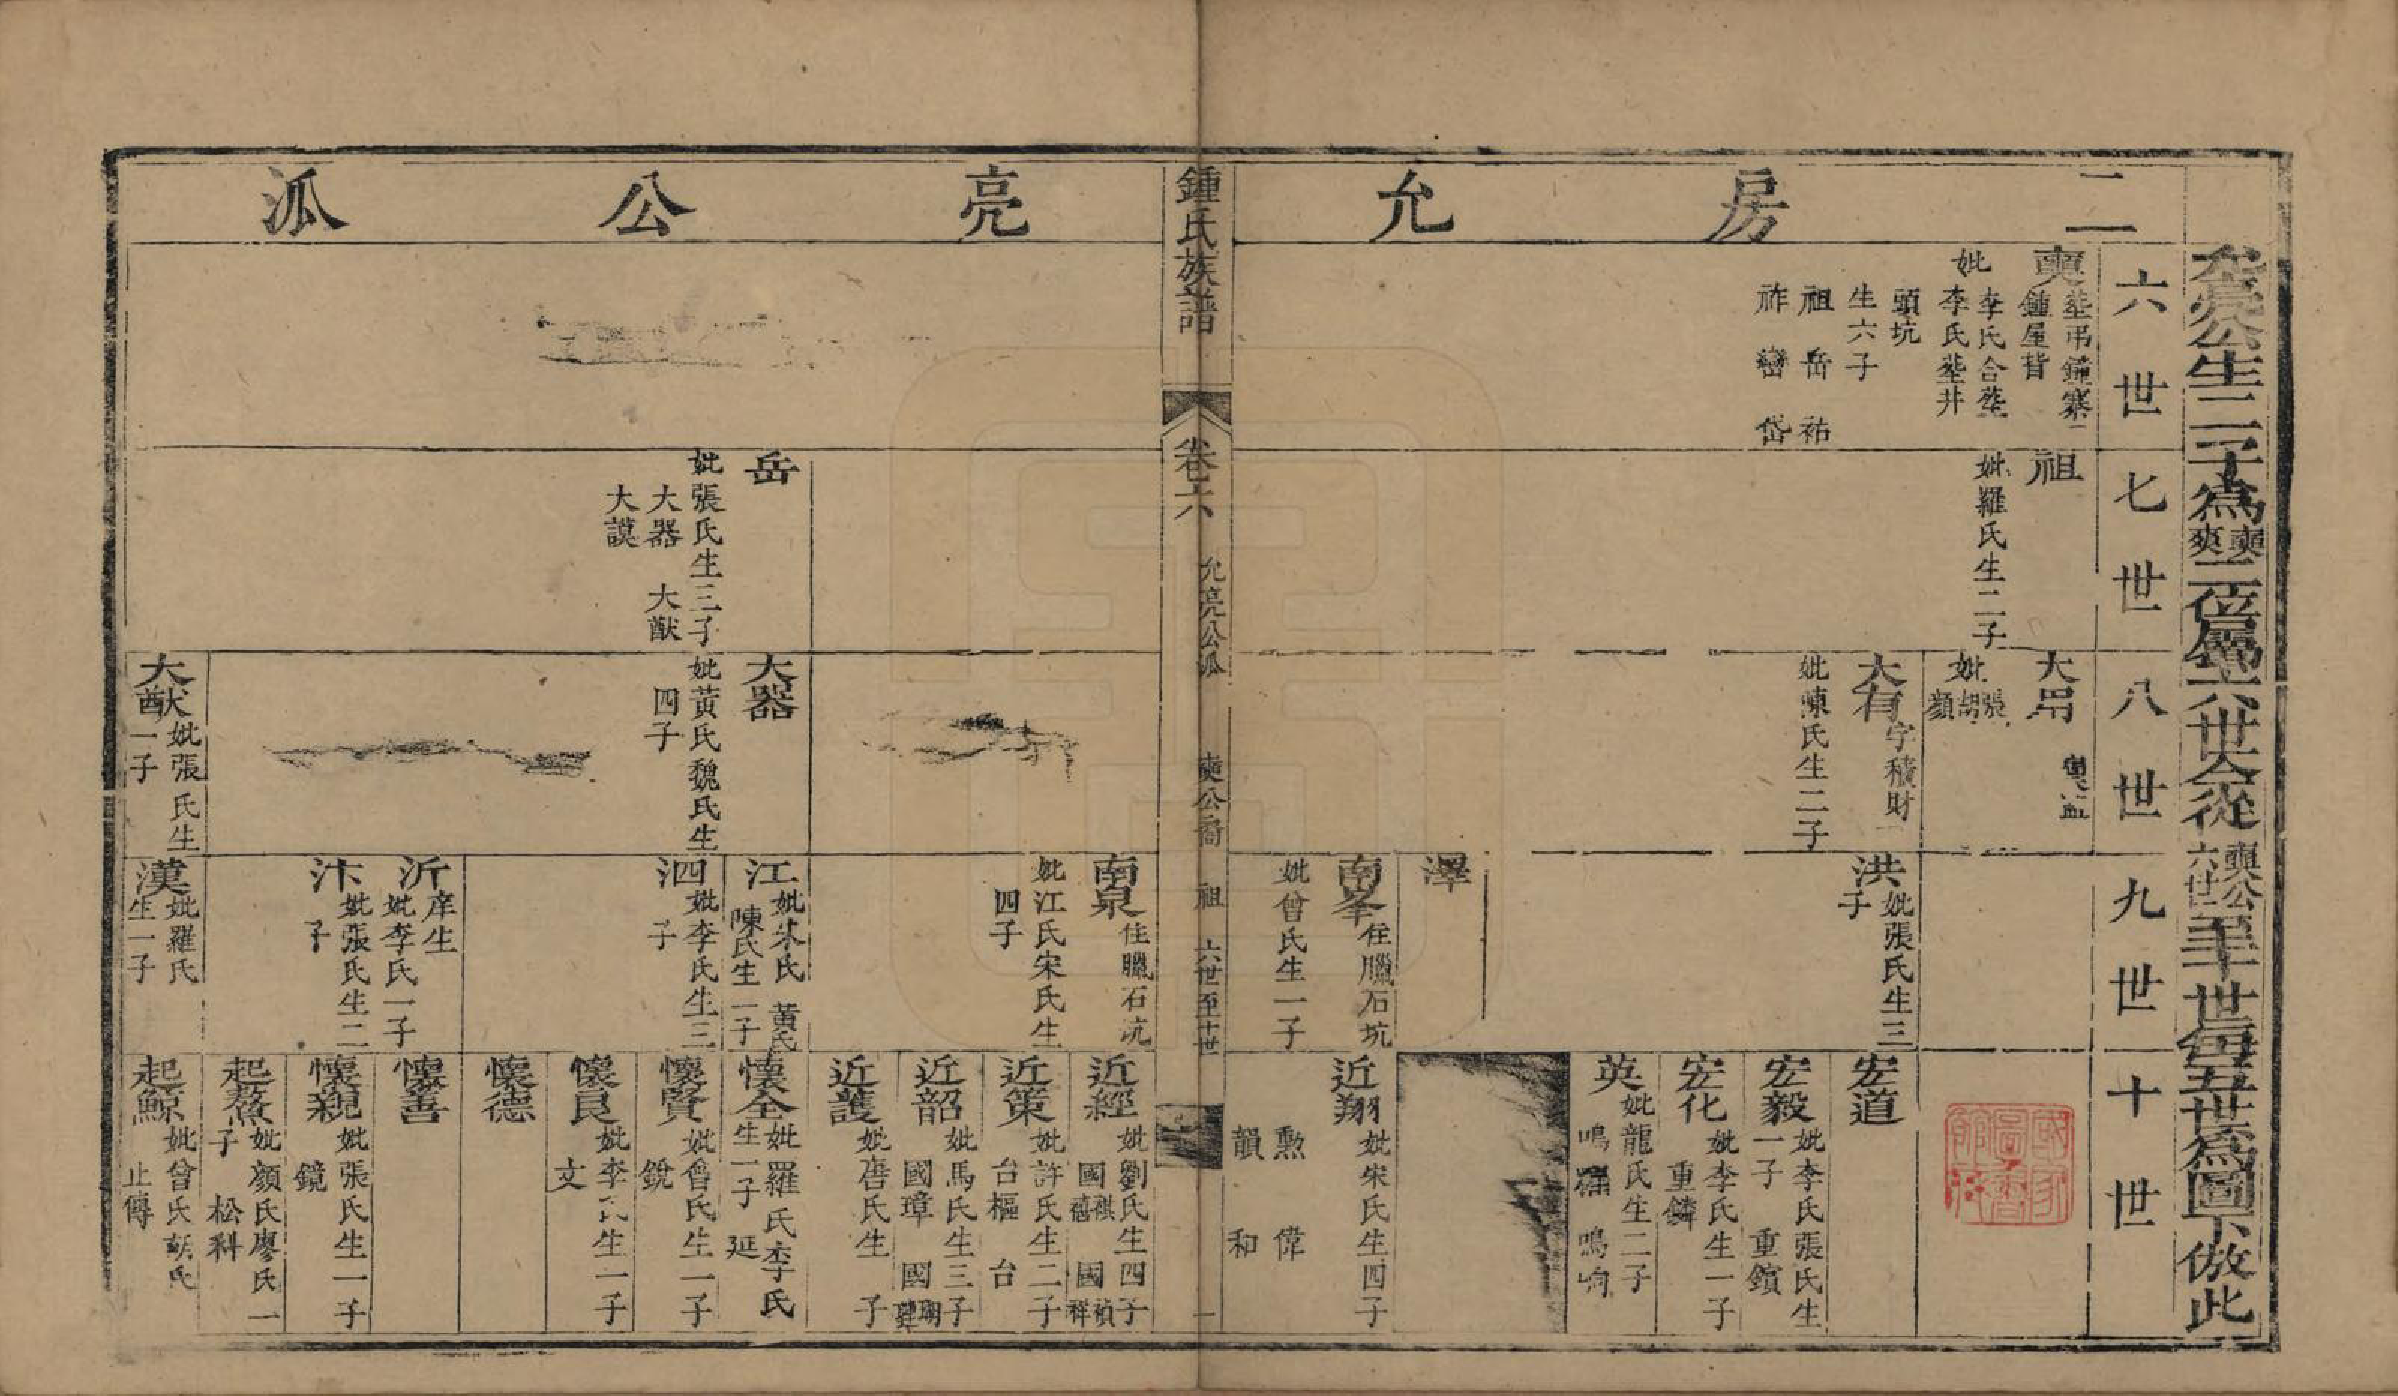 二房允亮公派
允亮公生二子為奭爽二位屬六世今從奭公六世至十世每五世為圖下倣此
六世
奭 塟弔鐘寨鍾屋背
妣 李氏合塟 李氏塟井頭坑
生六子
祖 岳 祐
祚 巒 岱
七世
祖
妣羅氏生二子
岳
妣張氏生三子
大器 大猷
大謨
八世
妣 張 胡 顏
大有 字積財
妣陳氏生二子
大器
妣黃氏魏氏生四子
大猷 妣張氏生一子
九世
洪 妣張氏生三子
澤
南峯 住臘石坑
妣曾氏生一子
南泉 住臘石坑
妣江氏宋氏生四子
江 妣朱氏 黃氏 陳氏生一子
泗 妣李氏生三子
沂 庠生 妣李氏一子
汴 妣張氏生二子
漢 妣羅氏生一子
十世
宏道
宏毅 妣李氏張氏生一子 重鑌
宏化 妣李氏生一子 重鏻
英 妣龍氏生二子
近翔 妣宋氏生四子
勲 偉
韻 和
鍾氏族譜
卷六
允亮公派
奭公裔
祖
六世至十世
一
近經 妣劉氏生四子 國祺 禧 國禎 祥
近策 妣許氏生二子 台樞 台
近韶 妣馬氏生三子 國璋 國
近護 妣唐氏生 子
懷全 妣羅氏李氏生一子 延
懷賢 妣曾氏生一子 銳
懷良 妣李氏生一子 文
懷德
懷善
懷親 妣張氏生一子 鏡
起鰲 妣顏氏廖氏一子 松科
起鯨 妣曾氏胡氏 止傳